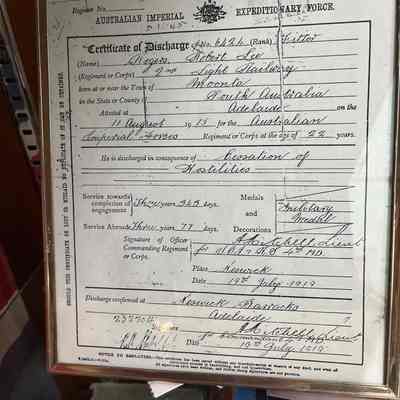 Register No.
AUSTRALIAN IMPERIAL EXPEDITIONARY FORCE.
Certificate of Discharge of No. 6424 (Rank) Fitter
(Name) Rogers Robert Lee
(Regiment or Corps) Light Railway
born at or near the Town of Moonta
in the State or County of South Australia
Attested at Adelaide on the
11 August 1915 for the Australian
Imperial Forces Regiment or Corps at the age of 22 years.
He is discharged in consequence of Cessation of
Hostilities
Service towards completion of engagement Three years 343 days.
Medals and Decorations Military Medal
Service Abroad Three years 77 days.
Signature of Officer Commanding Regiment or Corps. Lieut
4th MD
Place Keswick
Date 19th July 1919
Discharge confirmed at Keswick Barracks
Adelaide
Lieut
Date 19th July 1919
NOTICE TO EMPLOYERS.
SHOULD THIS CERTIFICATE BE LOST OR MISLAID NO DUPLICATE OF IT CAN BE OBTAINED.